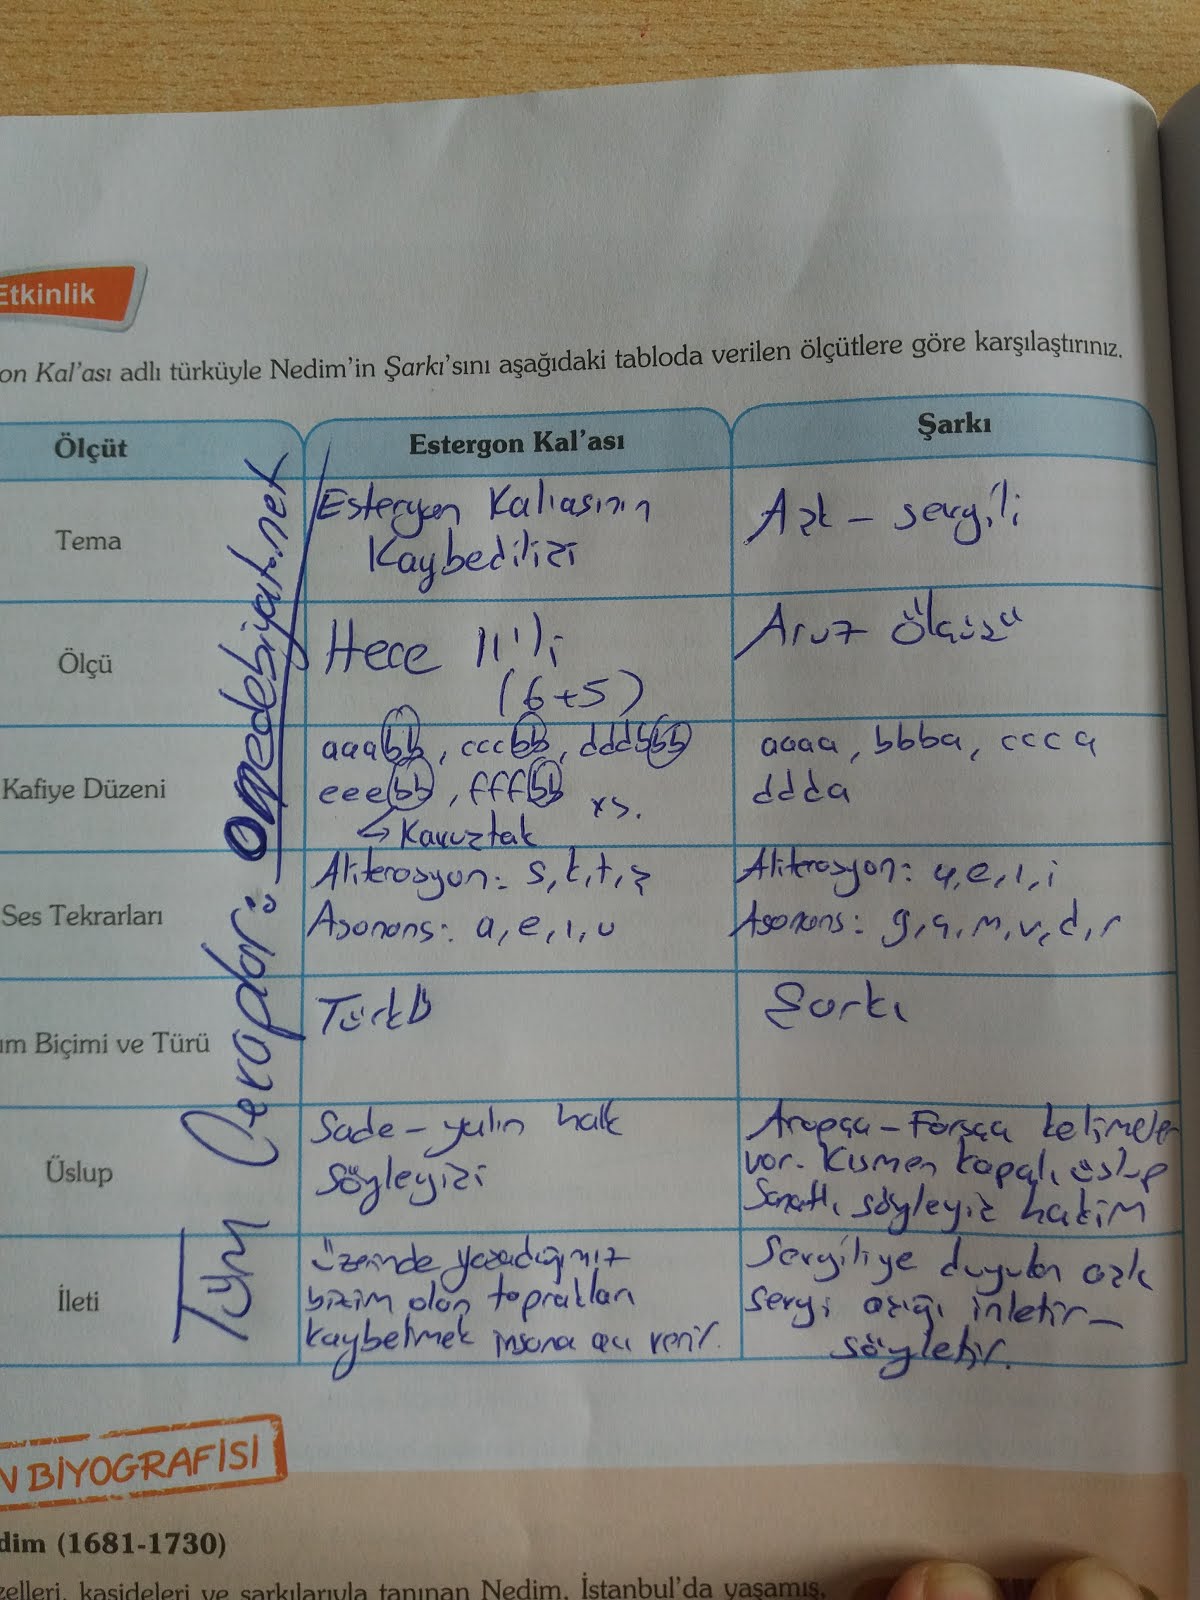 Etkinlik
on Kal'ası adlı türküyle Nedim'in Şarkı'sını aşağıdaki tabloda verilen ölçütlere göre karşılaştırınız.
Ölçüt
Estergon Kal'ası
Şarkı
Tema
Estergon Kalıasının
Kaybedilişi
Aşk – sevgili
Ölçü
Hece 11'li
(6+5)
Aruz Ölçüsü
Kafiye Düzeni
aaabb, cccbb, dddbbb
eeebb, fffbb vs.
→ Kavuştak
aaaa, bbba, ccca
ddda
Ses Tekrarları
Aliterasyon: s, k, t, ş
Asonans: a, e, ı, u
Aliterasyon: a, e, ı, i
Asonans: g, ş, m, v, d, r
ım Biçimi ve Türü
Türkü
Şarkı
Üslup
Sade – yalın halk
söyleyişi
Arapça – Farsça kelimeler
var. Kısmen kapalı üslup
Sanatlı söyleyiş hakim
İleti
üzerinde yaşadığımız
bizim olan toprakları
kaybetmek insana acı verir.
Sevgiliye duyulan aşk
sevgi aşığı inletir –
söyletir.
Tüm Cevaplar: omedebiyat.net
N BİYOGRAFİSİ
dim (1681-1730)
zelleri, kasideleri ve şarkılarıyla tanınan Nedim, İstanbul'da yaşamış,